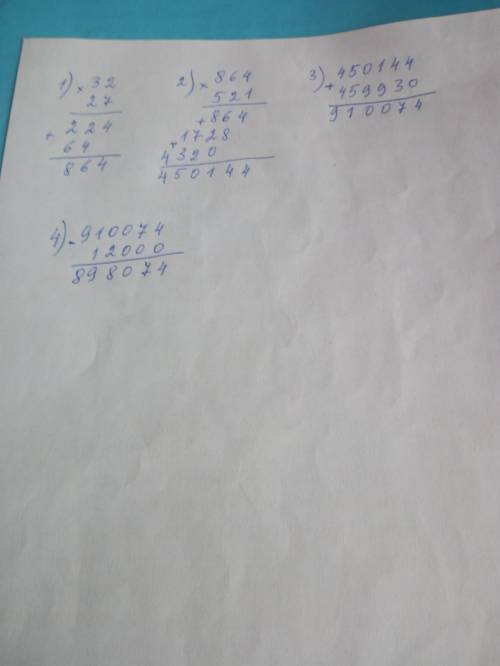 1) × 32
27
+ 224
64
864
2) × 864
521
+ 864
+ 1728
4320
450144
3) + 450144
459930
910074
4) - 910074
12000
898074